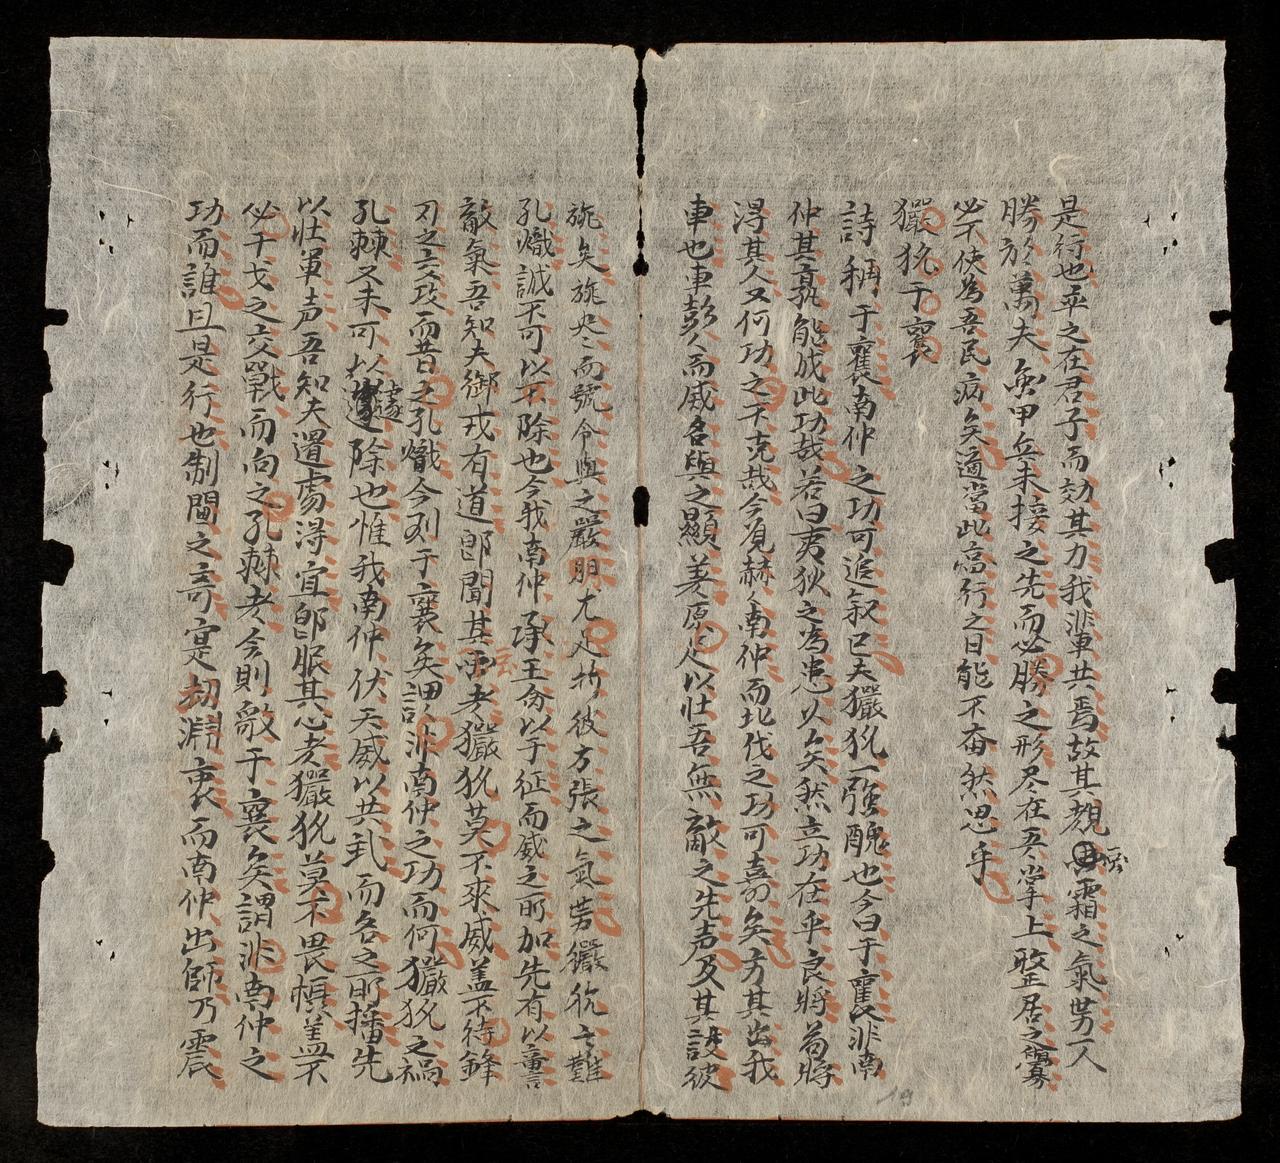 是行也平之在君子而効其力我輩共焉故其覩霜之氣势一人
勝於萬夫兔甲兵未接之先而必勝之形尽在吾掌上敢居之
必不使為吾民病矣適當此啓行之日能不奋然思乎
玁狁于襄
詩稱于襄南仲之功可追叙已夫玁狁一強醜也今曰于襄非南
仲其孰能成此功哉若曰夷狄之為患久矣然立功在乎良將苟將
淂其人又何功之不克哉今覓赫〻南仲而北伐之功可嘉矣方其出我
車也車彭〻而威名與之顯美原足以壮吾無敵之先声及其設彼
旐矣旐央〻而號令與之嚴明尤足折彼方張之氣势玁狁之難
孔熾誠不可以不除也今我南仲承王命以于征而威之所加先有以讋
敵氣吾知夫御戎有道即聞其而者玁狁莫不來威盖不待鋒
刃之交攻而昔之孔熾今則于襄矣謂非南仲之功而何玁狁之禍
孔棘又未可以遽除也惟我南仲伏天威以共武而名之所播先
以壮軍声吾知夫遇虜淂宜即服其心者玁狁莫不畏惧盖不
必干戈之交戰而向之孔棘者今則敵于襄矣謂非南仲之
功而誰且是行也制閫之竒寔刼淵衷而南仲出師乃震
19